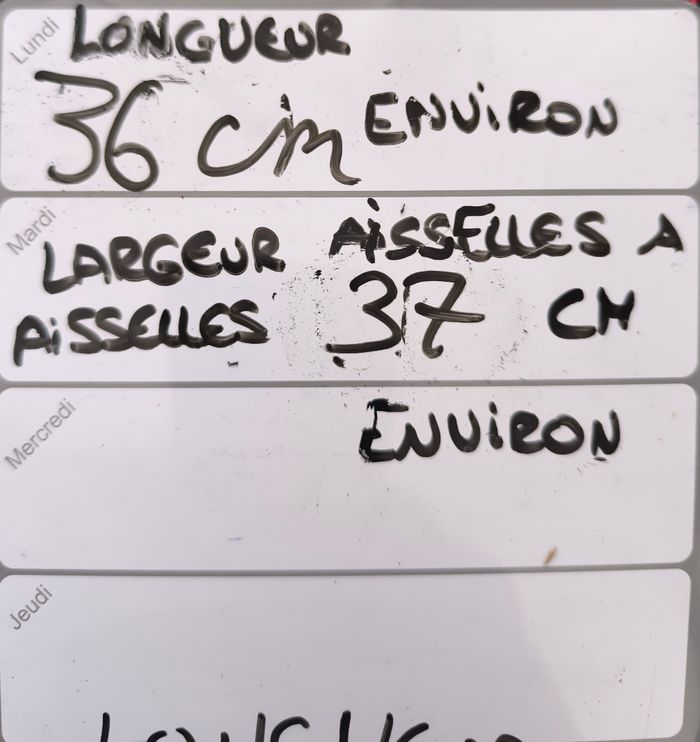 Lundi
LONGUEUR
36 cm ENVIRON
Mardi
LARGEUR AISSELLES A
AISSELLES 37 CM
Mercredi
ENVIRON
Jeudi